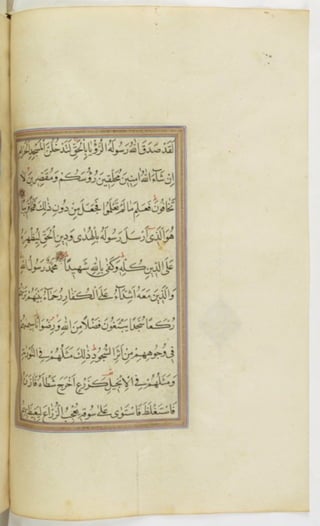 لَقَدْ صَدَقَ اللهُ رَسُولَهُ الرُّؤْيَا بِالْحَقِّ لَتَدْخُلُنَّ الْمَسْجِدَ الْحَرَامَ
اِنْ شَآءَ اللهُ اٰمِنِينَ مُحَلِّقِينَ رُؤُسَكُمْ وَمُقَصِّرِينَ لَا
تَخَافُونَ فَعَلِمَ مَا لَمْ تَعْلَمُوا فَجَعَلَ مِنْ دُونِ ذٰلِكَ فَتْحًا قَرِيبًا
هُوَ الَّذِى اَرْسَلَ رَسُولَهُ بِالْهُدٰى وَدِينِ الْحَقِّ لِيُظْهِرَهُ
عَلَى الدِّينِ كُلِّهِ وَكَفٰى بِاللهِ شَهِيدًا مُحَمَّدٌ رَسُولُ اللهِ
وَالَّذِينَ مَعَهُ اَشِدَّآءُ عَلَى الْكُفَّارِ رُحَمَآءُ بَيْنَهُمْ تَرٰيهُمْ
رُكَّعًا سُجَّدًا يَبْتَغُونَ فَضْلًا مِنَ اللهِ وَرِضْوَانًا سِيمَاهُمْ
فِى وُجُوهِهِمْ مِنْ اَثَرِ السُّجُودِ ذٰلِكَ مَثَلُهُمْ فِى التَّوْرٰيةِ
وَمَثَلُهُمْ فِى الْاِنْجِيلِ كَزَرْعٍ اَخْرَجَ شَطْاَهُ فَاٰزَرَهُ
فَاسْتَغْلَظَ فَاسْتَوٰى عَلٰى سُوقِهِ يُعْجِبُ الزُّرَّاعَ لِيَغِيظَ بِهِمُ